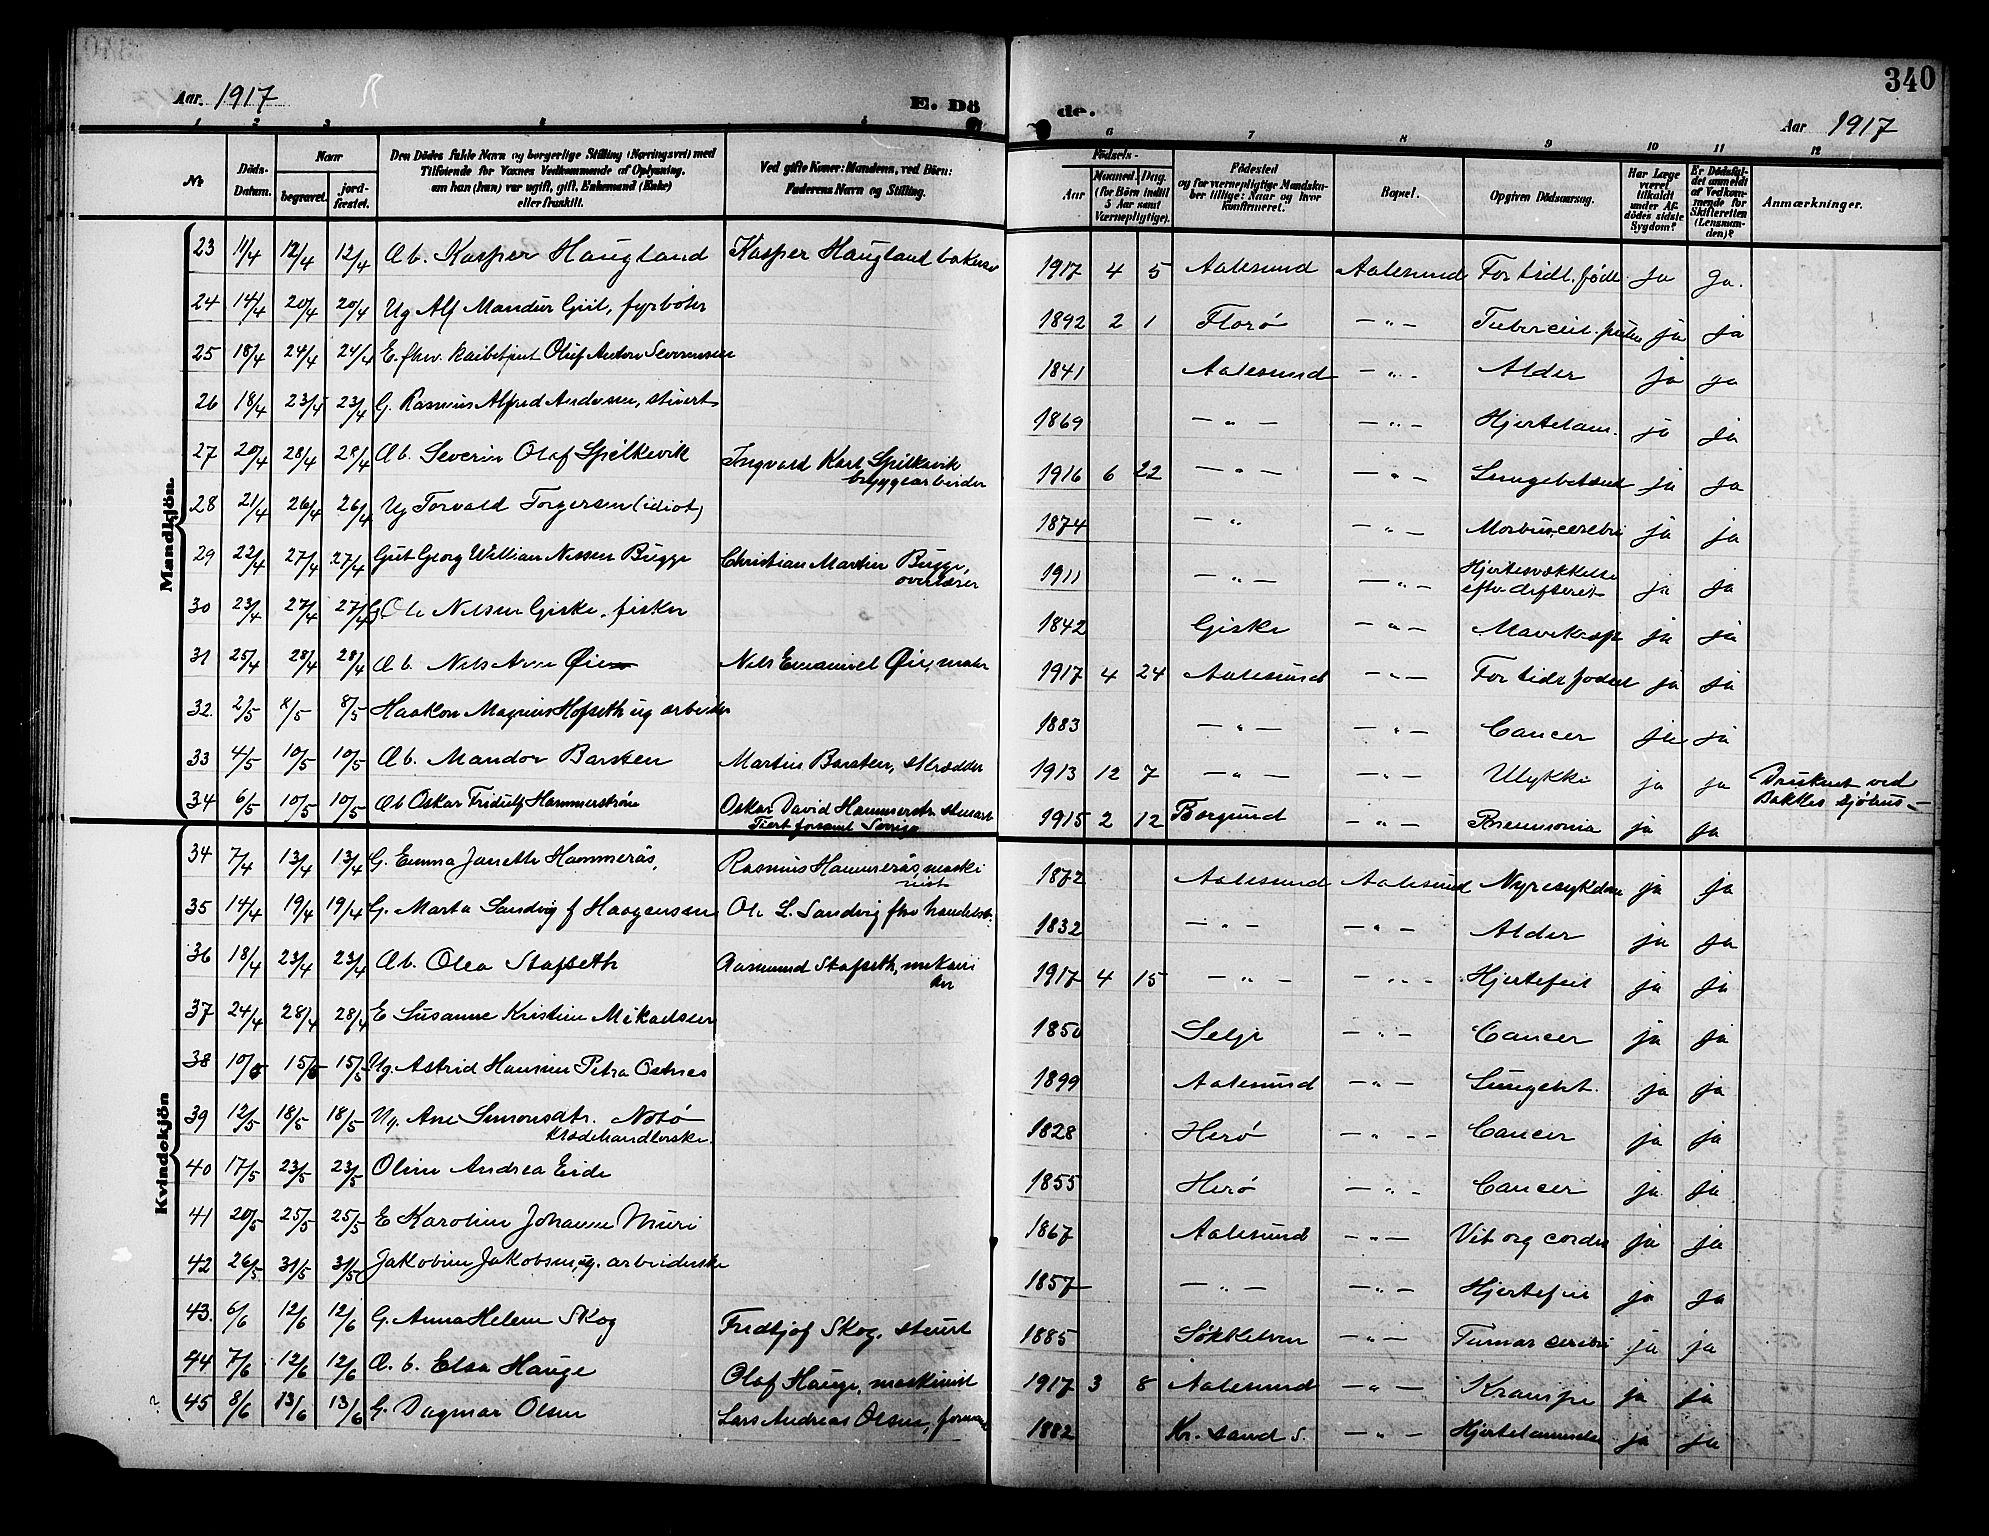 340
Aar. 1917
E. Dö
de.
Aar 1917
1 2 3 4 5
6 7 8 9 10 11 12
№
Döds-
Datum.
Naar
begravet.
jord-
fæstet.
Den Dödes fulde Navn og borgerlige Stilling (Næringsvei) med
Tilföiende for Voxnes Vedkommende af Oplysning,
om han (hun) var ugift, gift, Enkemand (Enke)
eller fraskilt.
Ved gifte Koner: Mandens, ved Börn:
Faderens Navn og Stilling.
Födsels-
Aar
Maaned. Dag.
(for Börn indtil
5 Aar samt
Værnepligtige).
Födested
og for værnepligtige Mandska-
ber tillige: Naar og hvor
konfirmeret.
Bopæl.
Opgiven Dödsaarsag.
Har Læge
været
tilkaldt
under Af-
dödes sidste
Sygdom?
Er Dödsfal-
det anmeldt
af Vedkom-
mende for
Skifteretten
(Lensman-
den)?
Anmærkninger.
Mandkjön.
23 11/4 12/4 12/4 Æb. Kasper Haugland Kasper Haugland bakersv 1917 4 5 Aalesund Aalesund For tidl. født ja ja.
24 14/4 20/4 20/4 Ug Alf Mandur fyrbøter 1892 2 1 Florø — " — Tubercul. ja ja
25 18/4 24/4 24/4 E. fhv. Oluf Anton Severinsen 1841 Aalesund — " — Alder ja ja
26 18/4 23/4 23/4 G. Rasmus Alfred Andersen, stuert 1869 — " — — " — Hjertelam. ja ja
27 20/4 28/4 28/4 Æb. Severin Olaf Spilkevik Ingvald Karl Spilkevik
bryggearbeider 1916 6 22 — " — " — Lungebetænd ja ja
28 21/4 26/4 26/4 Ug Torvald Torgersen (idiot) 1874 — " — " — Morbus cerebri ja ja
29 22/4 27/4 27/4 Gut Georg William Nissen Bugge Christian Martin Bugge,
overlærer 1911 — " — — " — Hjertesvækkelse
efter difteret ja ja
30 23/4 27/4 27/4 G Ole Nelsen Giske, fisker 1842 Giske — " — ja ja
31 25/4 28/4 28/4 Æb. Nils Arne Øie Nils Emanuel Øie, maler 1917 4 24 Aalesund — " — For tidl fødsel ja ja
32. 2/5 8/5 8/5 Haakon Magnus Hofseth ug arbeider 1883 — " — — " — Cancer ja ja
33 4/5 10/5 10/5 Æb. Mandor Barsten Martin Barsten, skrædder 1913 12 7 — " — — " — Ulykke ja ja Druknet ved
Bakkes sjøhus —
34 6/5 10/5 10/5 Æb Oskar Fridulf Hammerstrøm Oskar David Hammerstr. stuart
1915 2 12 Borgund — " — Pneumonia ja ja
Kvindekjön
34 7/4 13/4 13/4 G. Emma Janette Hammerås, Rasmus Hammerås, maski
nist 1872 Aalesund Aalesund Nyresykdom ja ja
35 14/4 19/4 19/4 G. Marta Sandvig f Haagensen Ole L. Sandvig fhv handelsb. 1832 — " — — " — Alder ja ja
36 18/4 23/4 23/4 Æb. Olea Stafseth Rasmund Stafseth, mekani
ker 1917 4 15 — " — — " — Hjertefeil ja ja
37 24/4 28/4 28/4 E Susanne Kristine Mikaelsen 1850 Selje — " — Cancer ja ja
38 10/5 15/5 15/5 Ug. Astrid Hansine Petra Osnes 1899 Aalesund — " — ja ja
39 12/5 18/5 18/5 Ug. Ane Simonsdtr. Notø
1828 Herø — " — Cancer ja ja
40 17/5 23/5 23/5 Oline Andrea Eide 1855 Herø — " — Cancer ja ja
41 20/5 25/5 25/5 E Karoline Johanne Muri 1867 Aalesund — " — Vit org cordis ja ja
42 26/5 31/5 31/5 Jakobine Jakobsen, ug. arbeiderske 1857 — " — — " — Hjertefeil ja ja
43. 6/6 12/6 12/6 G. Anna Helene Skog Fridtjof Skog, stuert 1885 Søkkelven — " — Tumor cerebri ja ja
44 7/6 12/6 12/6 Æ. b. Elsa Hauge Olaf Hauge, maskinist 1917 3 8 Aalesund — " — Krampe ja ja
45 8/6 13/6 13/6 G. Dagmar Olsen Lars Andreas Olsen, formand 1882 Kr. sand S. — " — Hjertelammelse ja ja